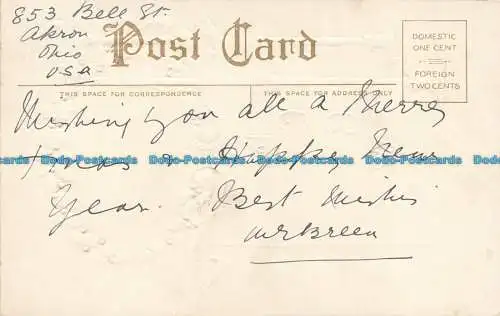 853 Bell St.
Akron
Ohio
USA
Post Card
DOMESTIC
ONE CENT
FOREIGN
TWO CENTS
THIS SPACE FOR CORRESPONDENCE
THIS SPACE FOR ADDRESS ONLY
Wishing you all a Merry
Xmas & Happy New
Year. Best Wishes
Dodo-Postcards Dodo-Postcards Dodo-Postcards Dodo-Postcards Dodo-Postcards Dodo-Postcards